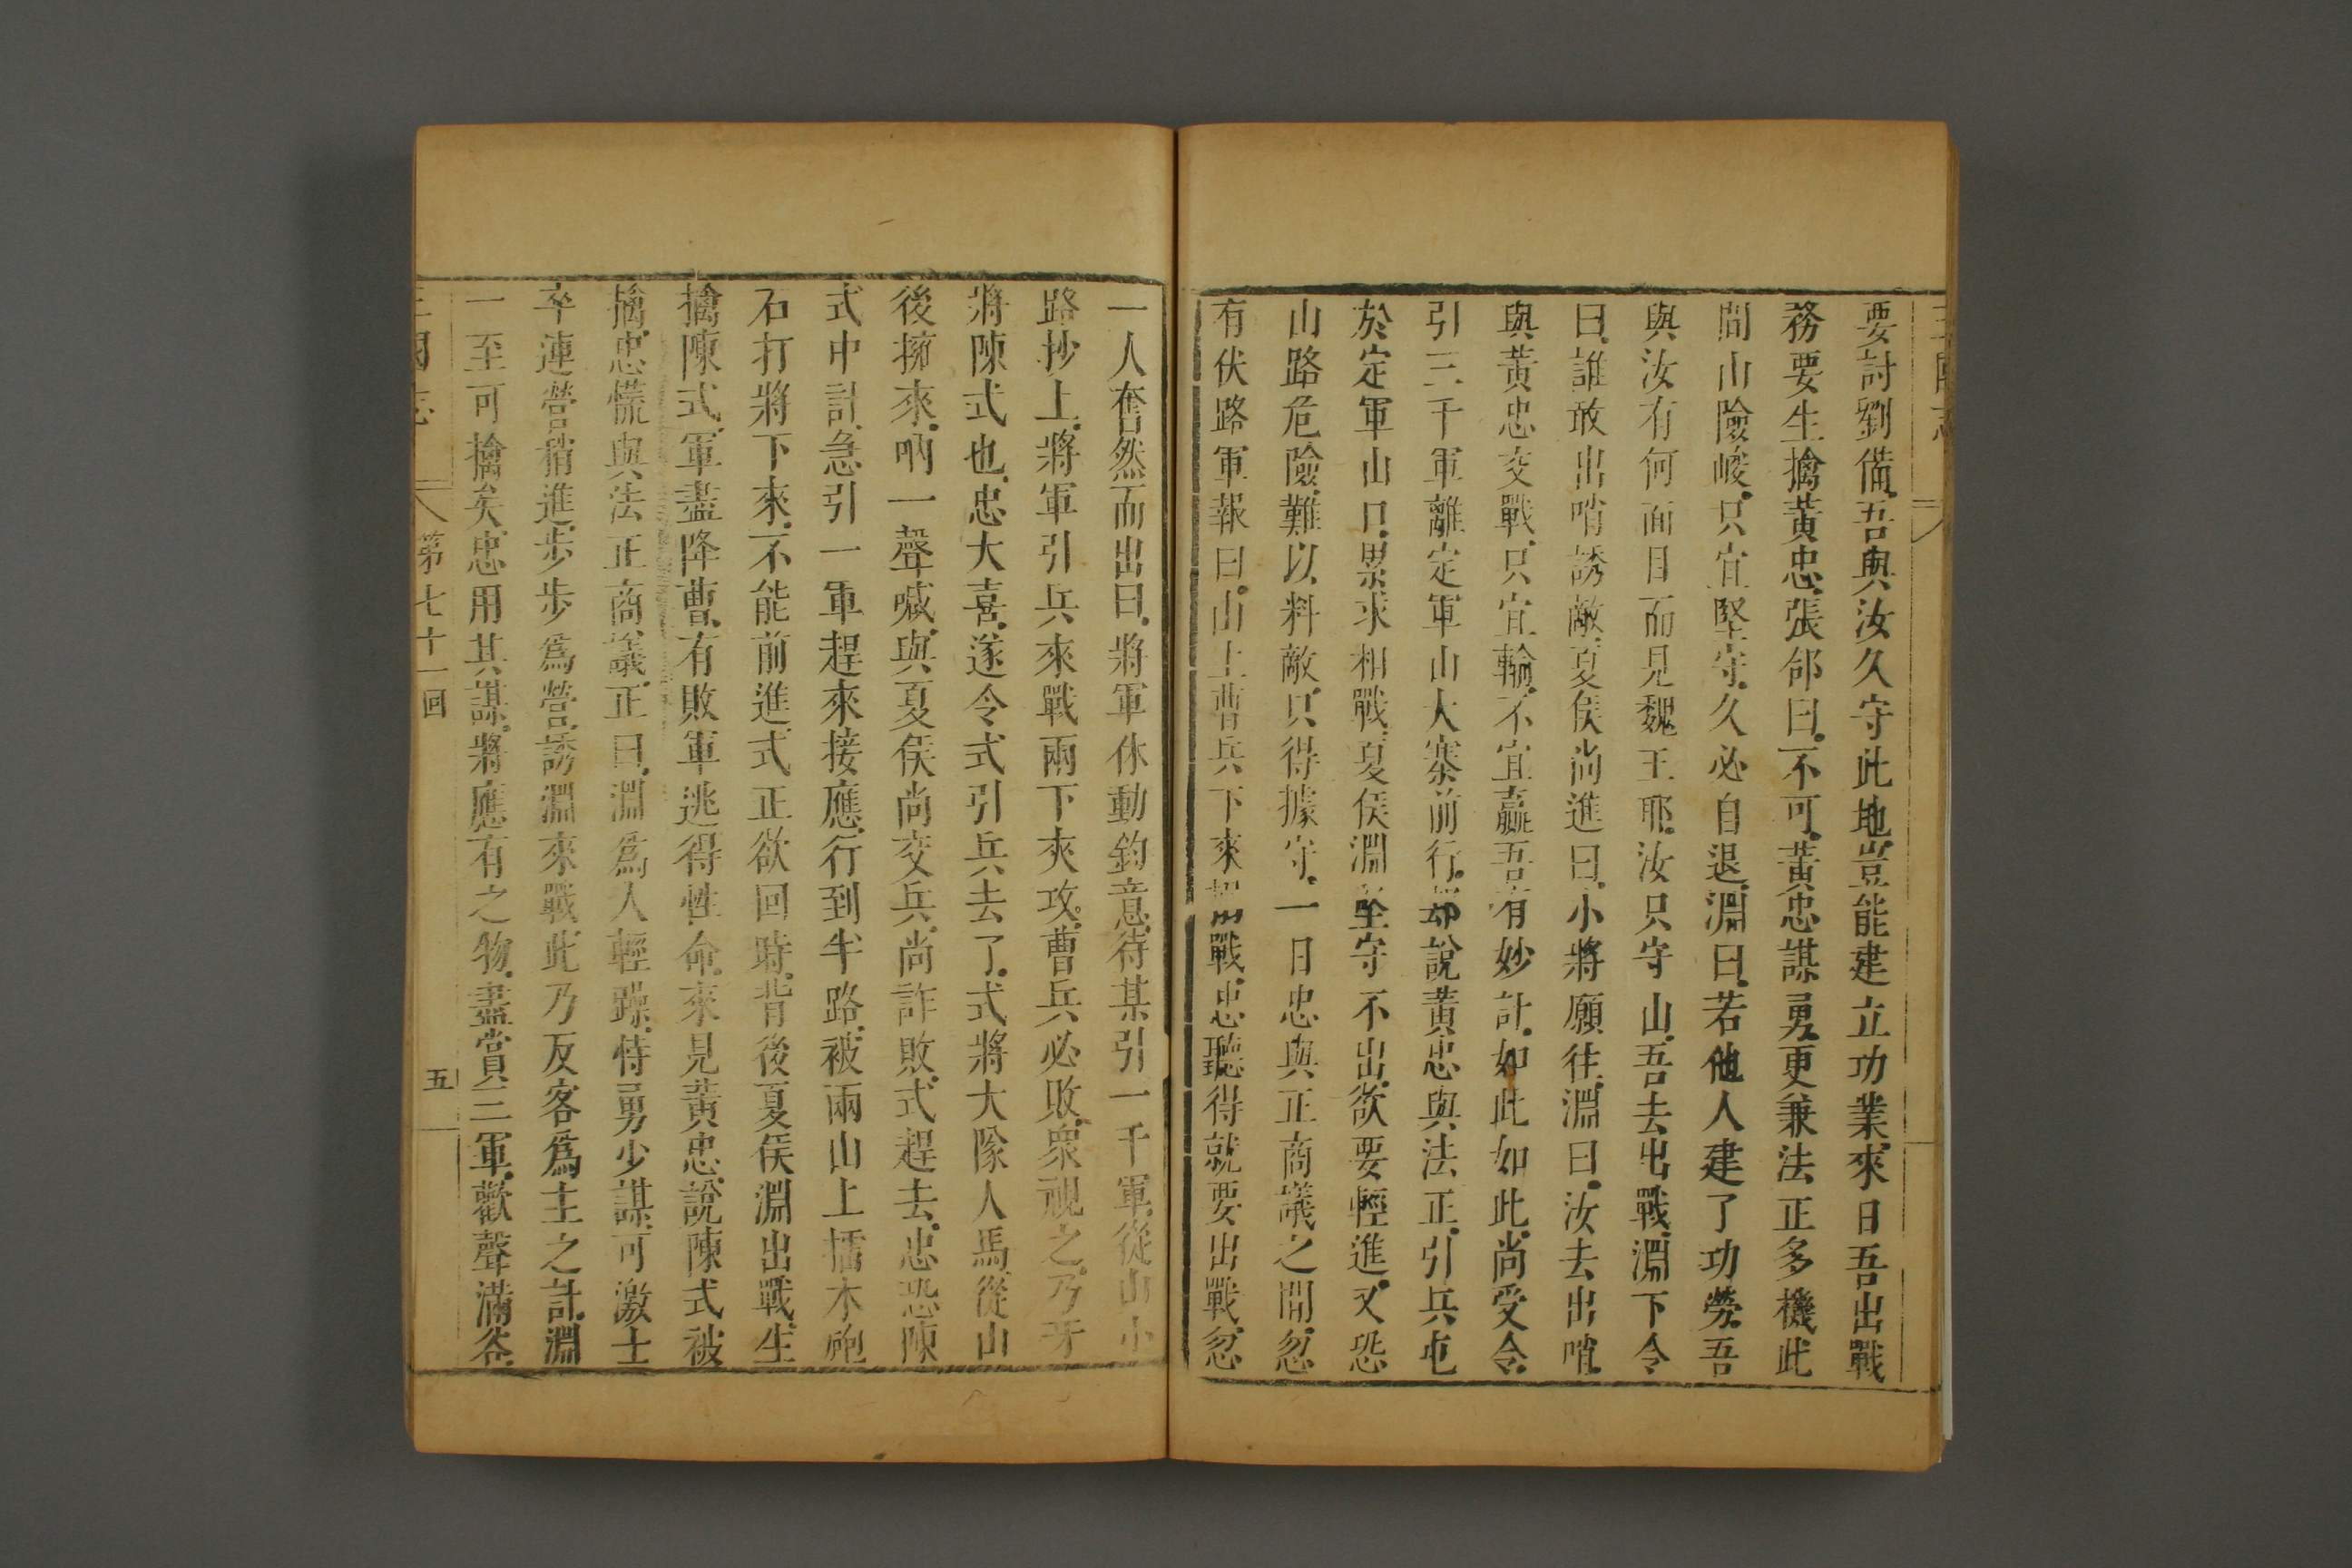 三國志
要討劉備。吾與汝久守此地。豈能建立功業。來日吾出戰
務要生擒黃忠。張郃曰。不可。黃忠謀勇。更兼法正多機。此
間山險峻。只宜堅守。久必自退。淵曰。若他人建了功勞。吾
與汝有何面目而見魏王耶。汝只守山。吾去出戰。淵下令
曰。誰敢出哨誘敵。夏侯尚進曰。小將願往。淵曰。汝去出哨。
與黃忠交戰。只宜輸。不宜贏。吾有妙計。如此如此。尚受令。
引三千軍離定軍山大寨前行。却說黃忠與法正。引兵屯
於定軍山口。累求相戰。夏侯淵堅守不出。欲要輕進。又恐
山路危險。難以料敵。只得據守。一日忠與正商議之間。忽
有伏路軍報曰。山上曹兵下來搦戰。忠聽得就要出戰。忽
一人奮然而出曰。將軍休動鈞意。待某引一千軍。從山小
路抄上。將軍引兵來戰。兩下夾攻。曹兵必敗。衆視之。乃牙
將陳式也。忠大喜。遂令式引兵去了。式將大隊人馬從山
後擁來。吶一聲喊。與夏侯尚交兵。尚詐敗。式趕去。忠恐陳
式中計。急引一軍趕來接應。行到半路。被兩山上擂木砲
石打將下來。不能前進。式正欲回時。背後夏侯淵出戰。生
擒陳式。軍盡降曹。有敗軍逃得性命。來見黃忠。說陳式被
擒。忠慌與法正商議。正曰。淵爲人輕躁。恃勇少謀。可激士
卒連營稍進。步步爲營。誘淵來戰。此乃反客爲主之計。淵
一至可擒矣。忠用其謀。將應有之物。盡賞三軍。歡聲滿谷。
三國志 第七十一回 五